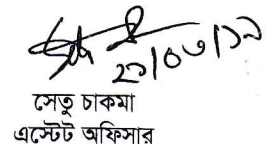 ২১/০৩/১৯
সেতু চাকমা
এস্টেট অফিসার